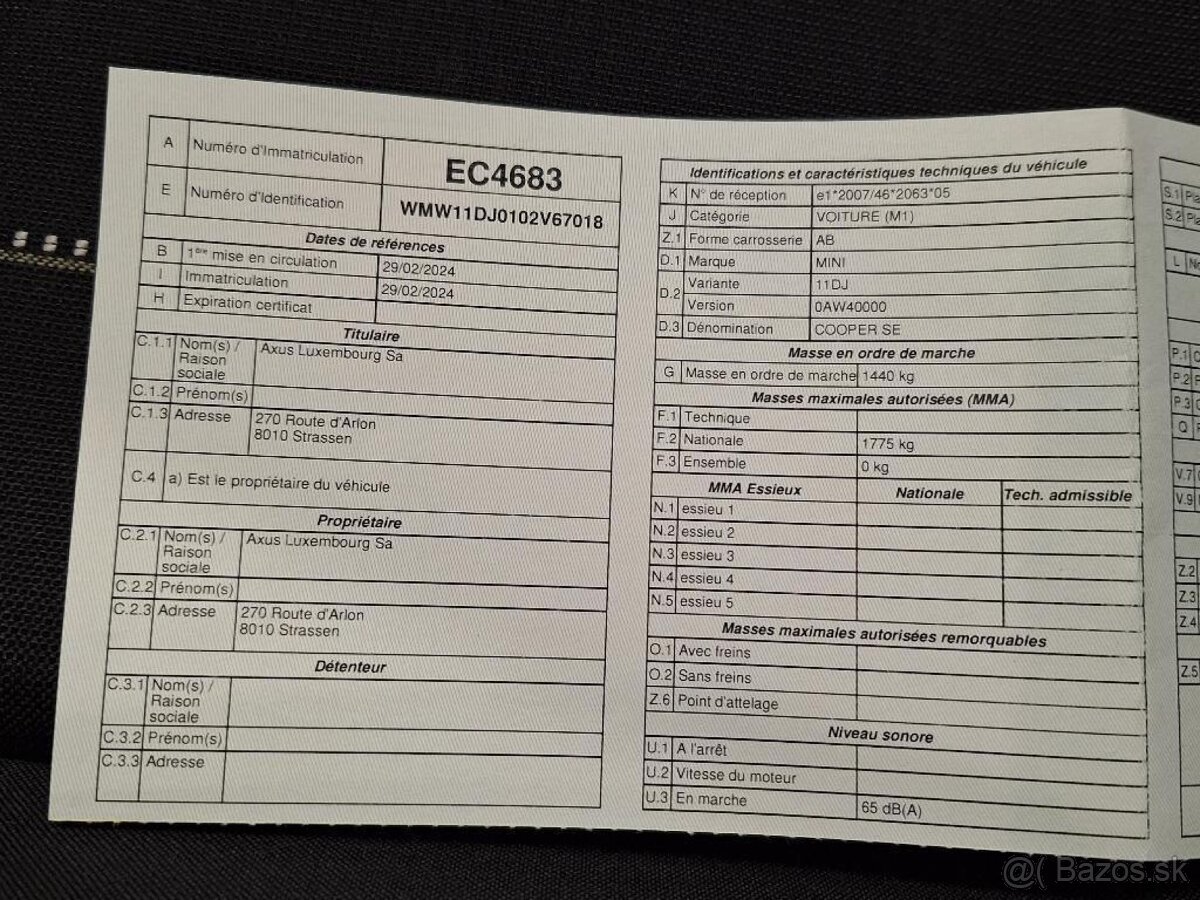 A Numéro d'Immatriculation EC4683
E Numéro d'Identification WMW11DJ0102V67018
Dates de références
B 1ère mise en circulation 29/02/2024
I Immatriculation 29/02/2024
H Expiration certificat
Titulaire
C.1.1 Nom(s) / Axus Luxembourg Sa
Raison
sociale
C.1.2 Prénom(s)
C.1.3 Adresse 270 Route d'Arlon
8010 Strassen
C.4 a) Est le propriétaire du véhicule
Propriétaire
C.2.1 Nom(s) / Axus Luxembourg Sa
Raison
sociale
C.2.2 Prénom(s)
C.2.3 Adresse 270 Route d'Arlon
8010 Strassen
Détenteur
C.3.1 Nom(s) /
Raison
sociale
C.3.2 Prénom(s)
C.3.3 Adresse
Identifications et caractéristiques techniques du véhicule
K N° de réception e1*2007/46*2063*05
J Catégorie VOITURE (M1)
Z.1 Forme carrosserie AB
D.1 Marque MINI
D.2 Variante 11DJ
Version 0AW40000
D.3 Dénomination COOPER SE
Masse en ordre de marche
G Masse en ordre de marche 1440 kg
Masses maximales autorisées (MMA)
F.1 Technique
F.2 Nationale 1775 kg
F.3 Ensemble 0 kg
MMA Essieux Nationale Tech. admissible
N.1 essieu 1
N.2 essieu 2
N.3 essieu 3
N.4 essieu 4
N.5 essieu 5
Masses maximales autorisées remorquables
O.1 Avec freins
O.2 Sans freins
Z.6 Point d'attelage
Niveau sonore
U.1 A l'arrêt
U.2 Vitesse du moteur
U.3 En marche 65 dB(A)
S.1 Pla
S.2 Pla
L
P.1
P.2
P.3
Q
V.7
V.9
Z.2
Z.3
Z.4
Z.5
@( Bazos.sk